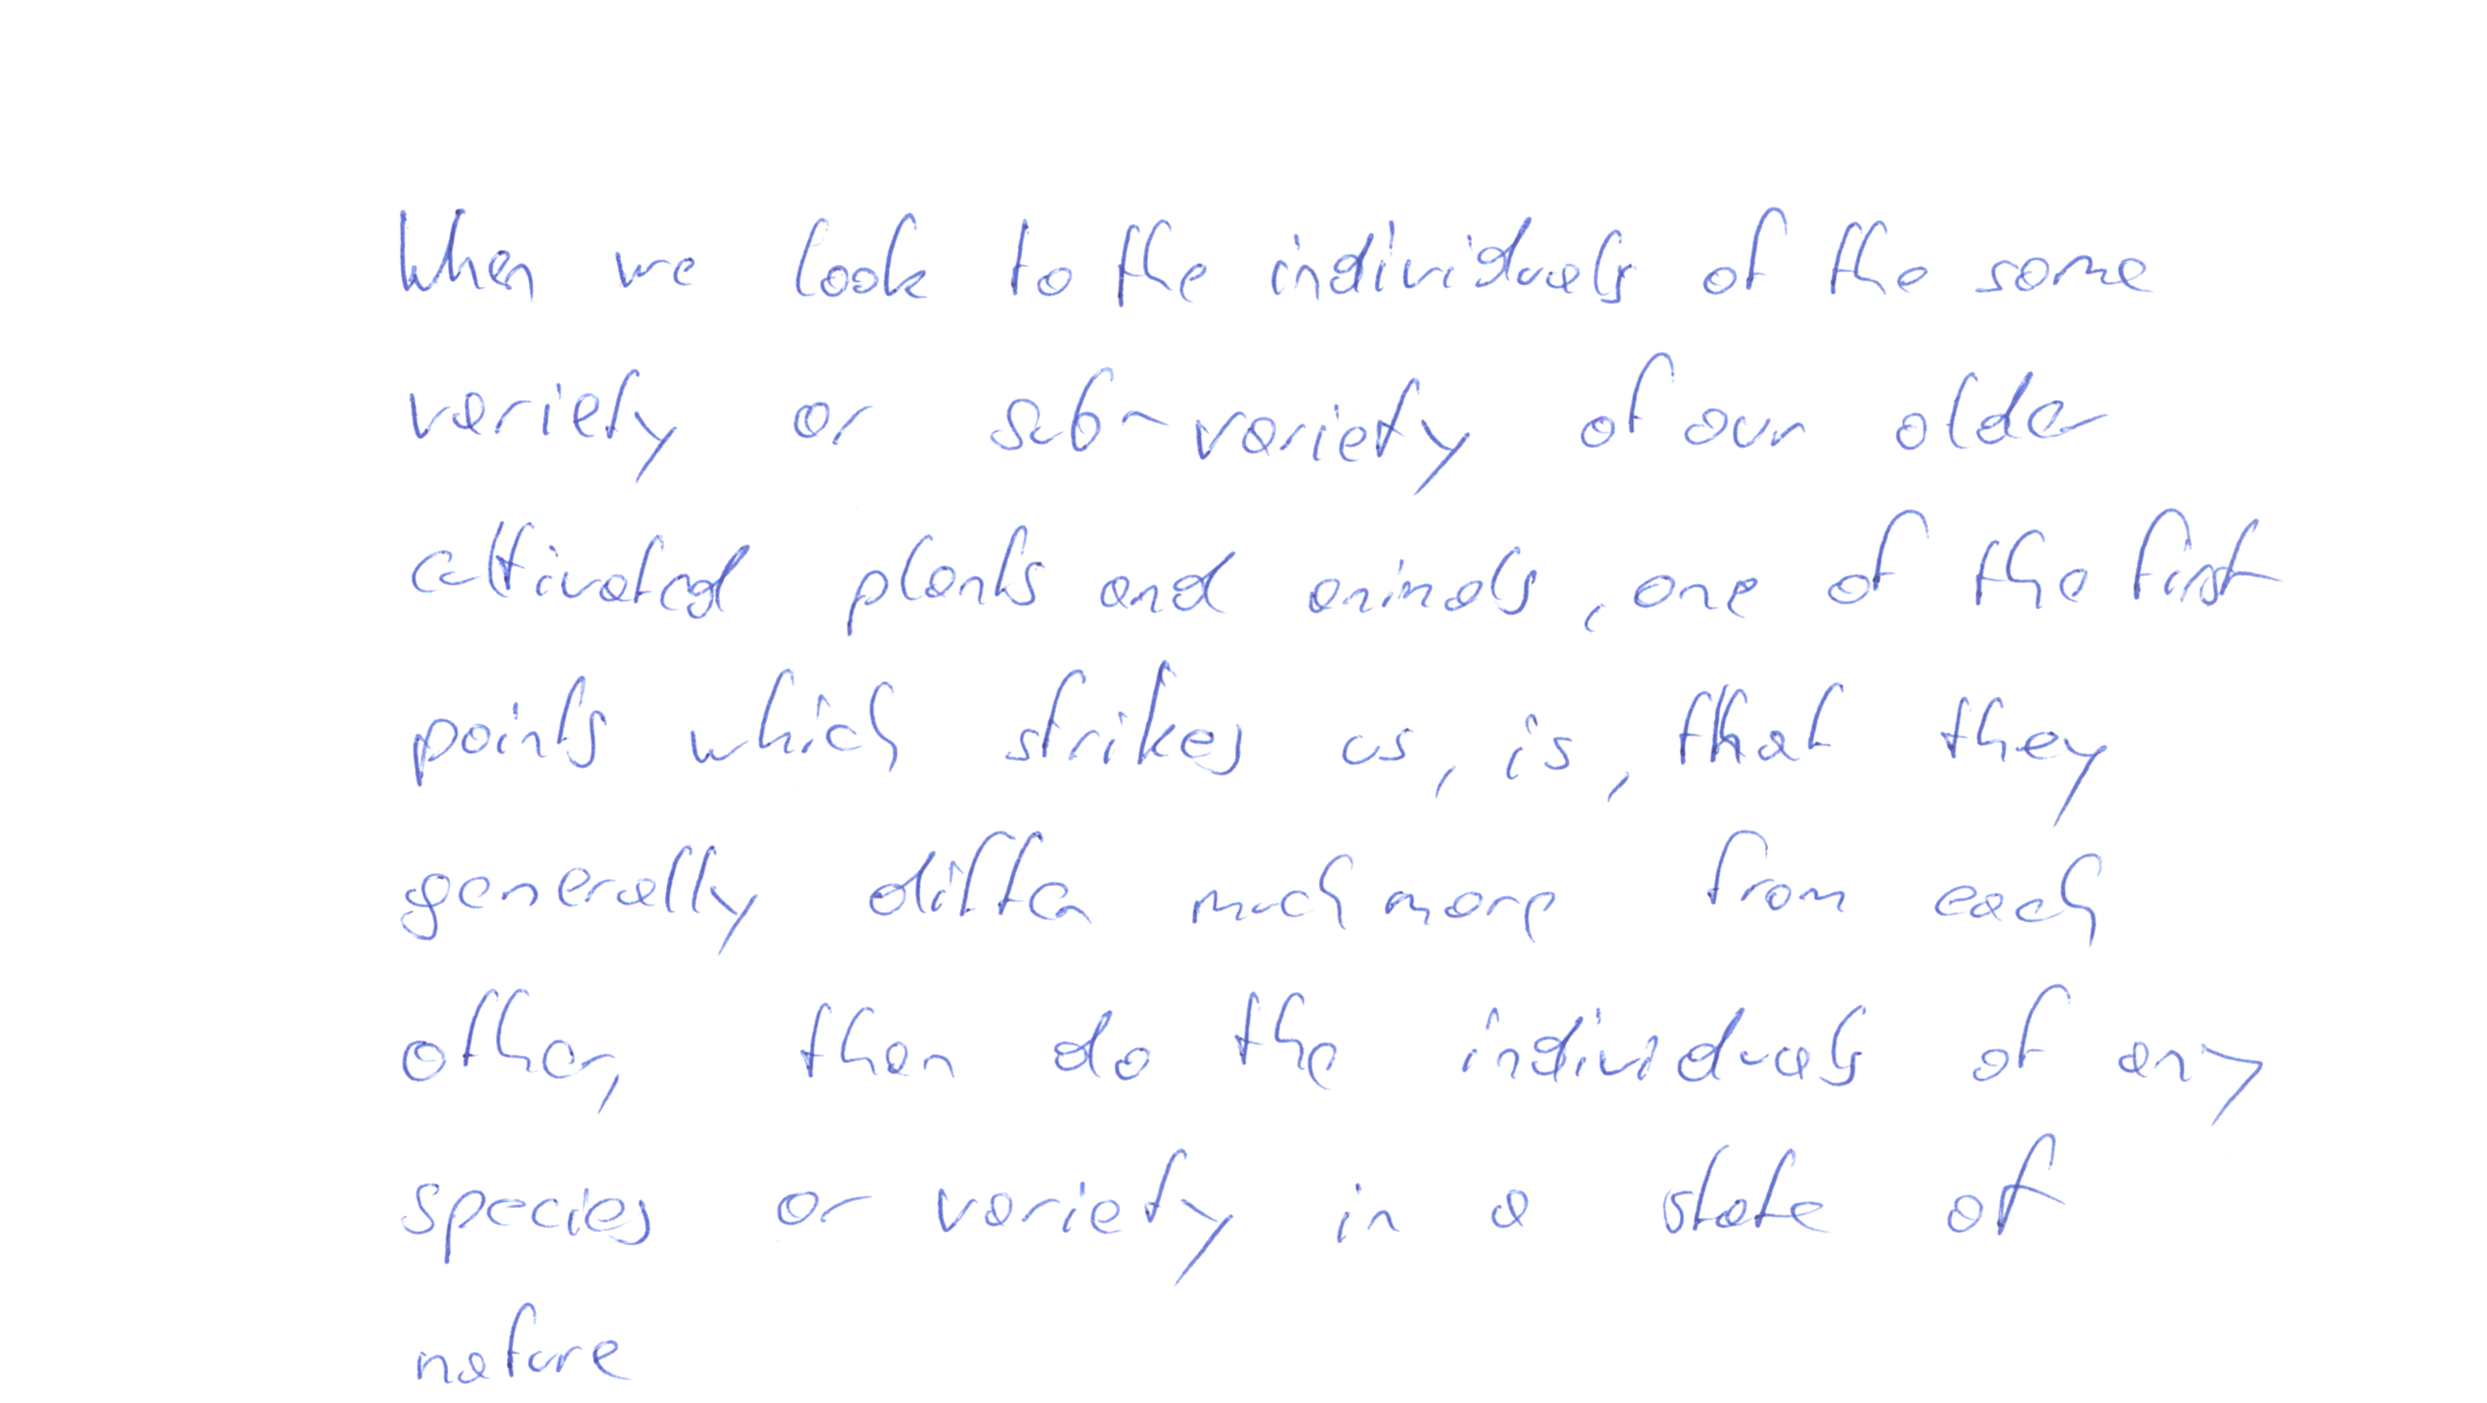 When we look to the individuals of the same
variety or sub-variety of our older
cultivated plants and animals, one of the first
points which strikes us, is, that they
generally differ much more from each
other, than do the individuals of any
species or variety in a state of
nature